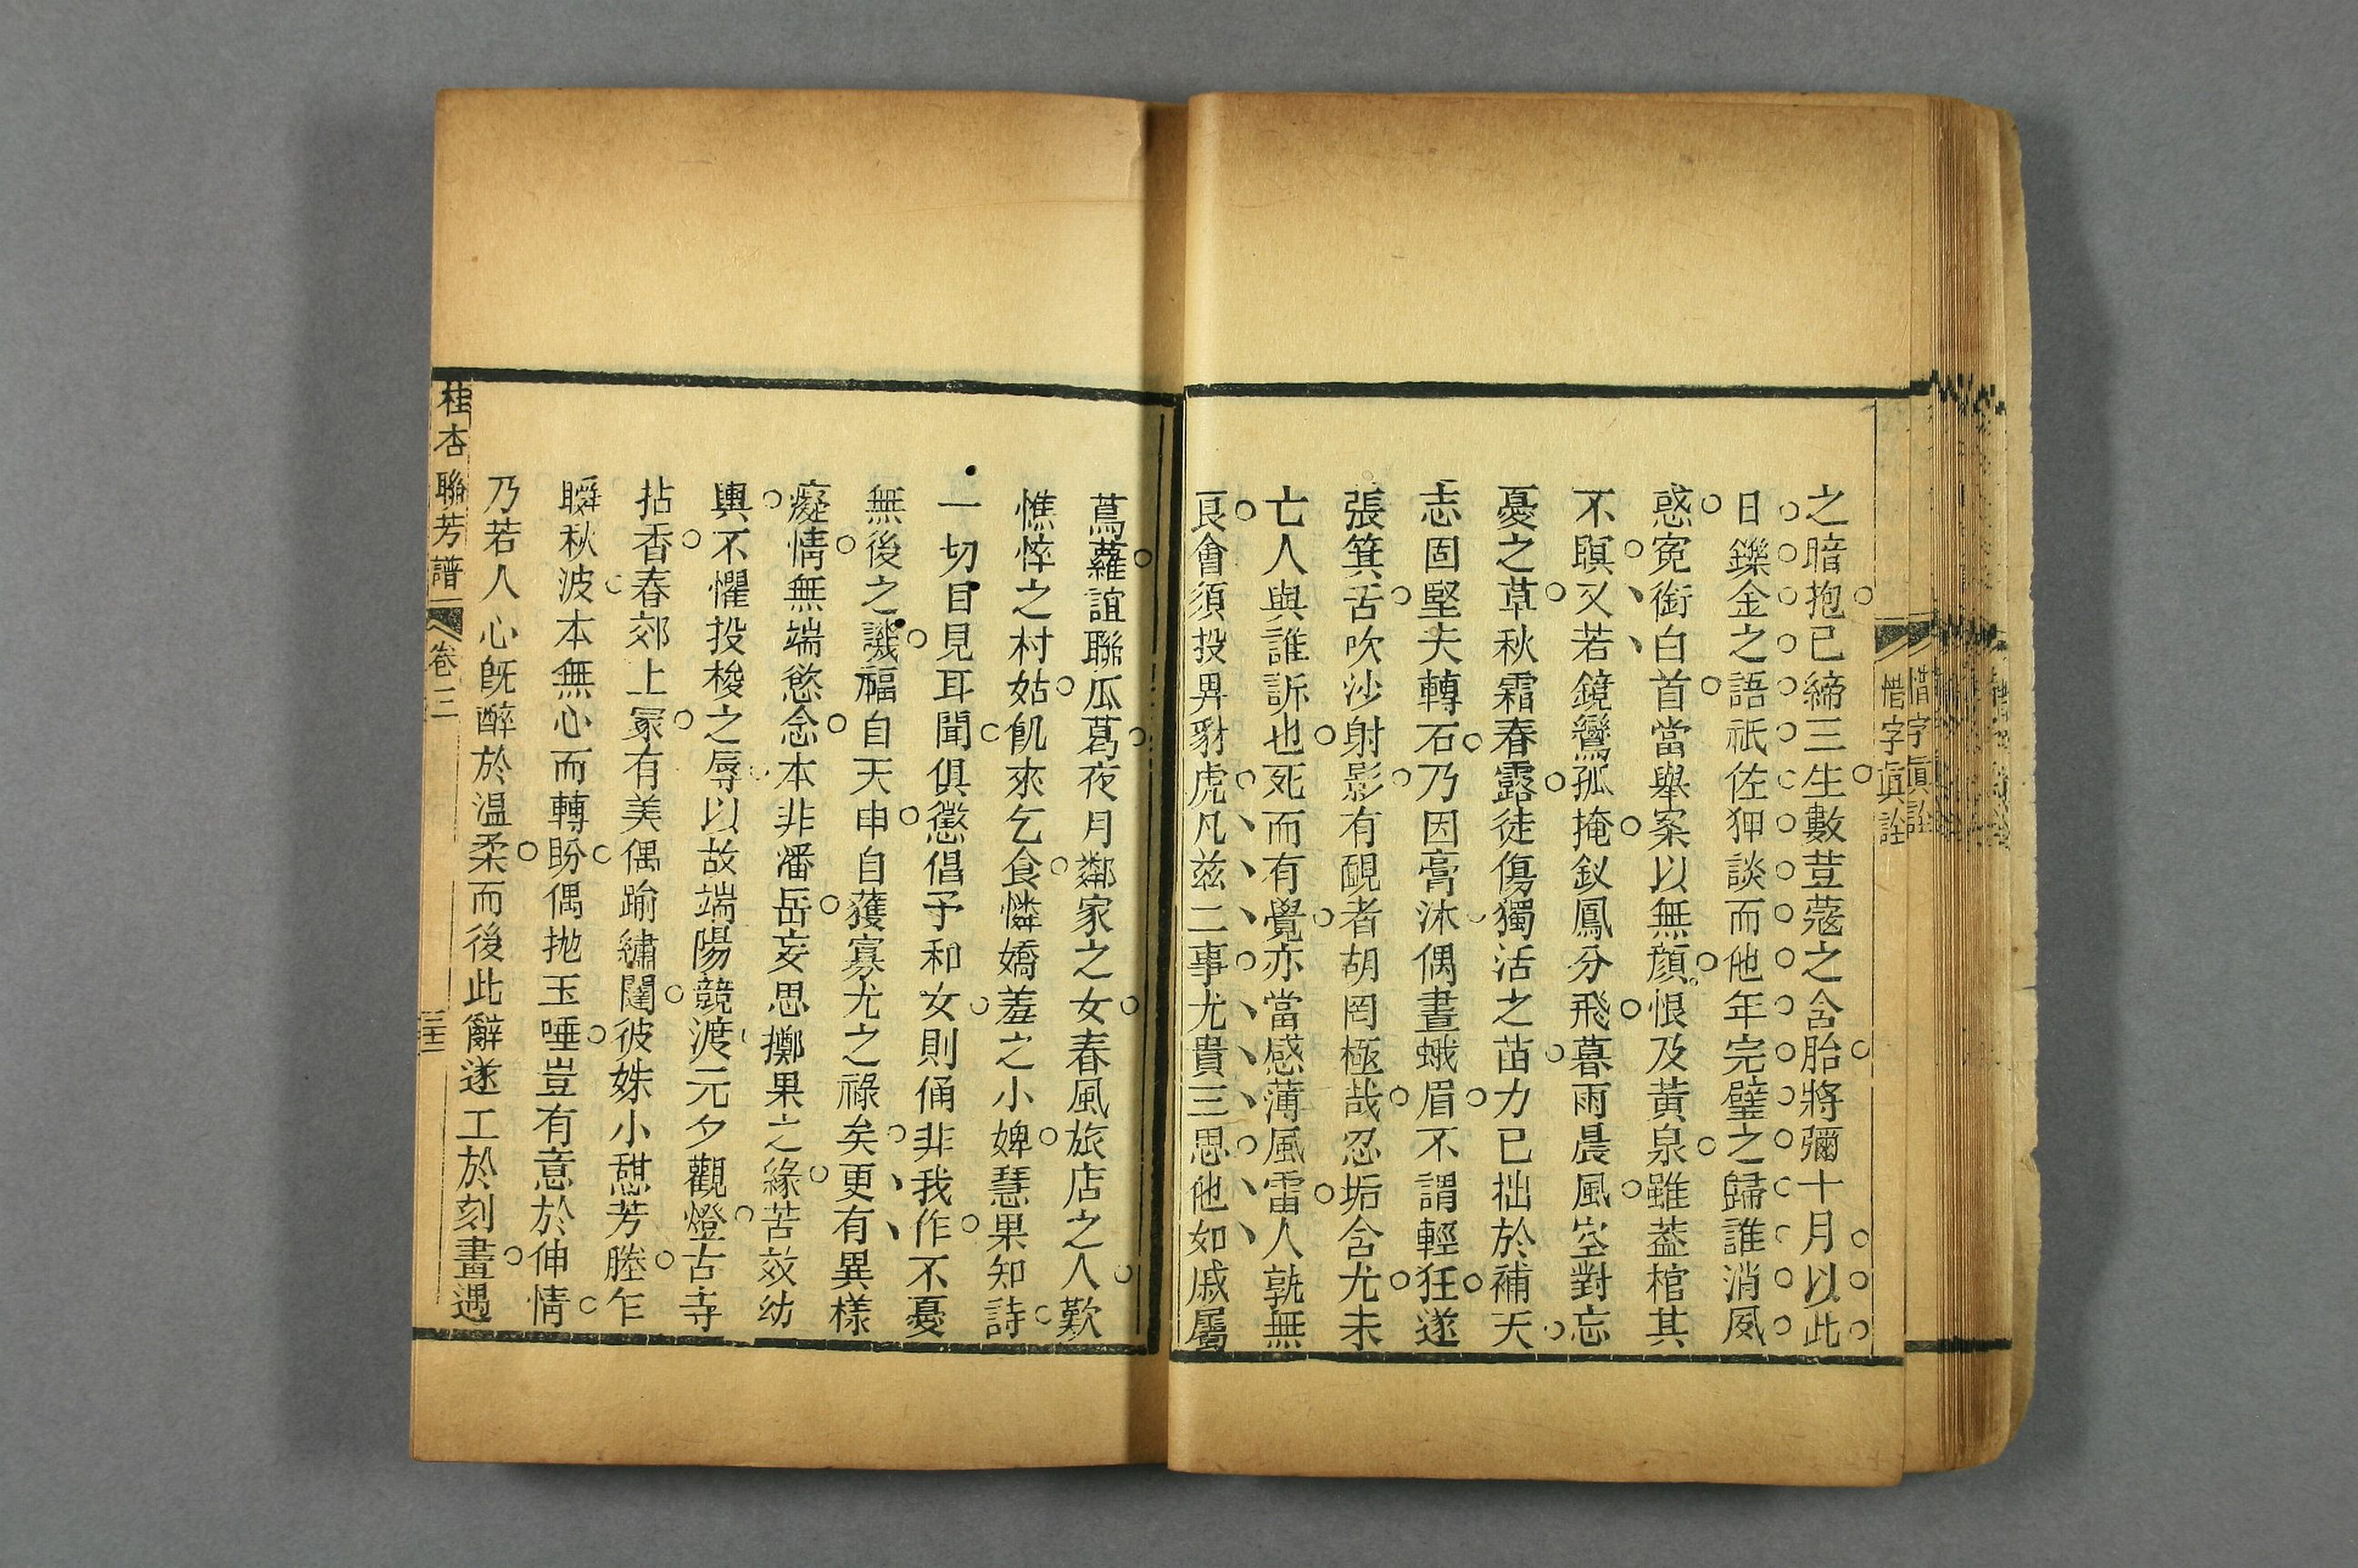 惜字眞詮
惜字眞詮
之暗抱已締三生數荳蔻之含胎將彌十月以此
日鑠金之語祇佐狎談而他年完璧之歸誰消夙
惑寃銜白首當舉案以無顏恨及黃泉雖蓋棺其
不瞑又若鏡鸞孤掩釵鳳分飛暮雨晨風空對忘
憂之草秋霜春露徒傷獨活之苗力已拙於補天
志固堅夫轉石乃因膏沐偶畫蛾眉不謂輕狂遂
張箕舌吹沙射影有靦者胡罔極哉忍垢含尤未
亡人與誰訴也死而有覺亦當感薄風雷人孰無
良會須投畀豺虎凡兹二事尤貴三思他如戚屬
蔦蘿誼聯瓜葛夜月鄰家之女春風旅店之人歎
憔悴之村姑飢來乞食憐嬌羞之小婢慧果知詩
一切目見耳聞俱懲倡予和女則俑非我作不憂
無後之譏福自天申自獲寡尤之祿矣更有異樣
癡情無端慾念本非潘岳妄思擲果之緣苦效幼
輿不懼投梭之辱以故端陽競渡元夕觀燈古寺
拈香春郊上冢有美偶踰繡闥彼姝小憩芳塍乍
瞬秋波本無心而轉盼偶拋玉唾豈有意於伸情
乃若人心旣醉於温柔而後此辭遂工於刻畫遇
桂杏聯芳譜 卷三